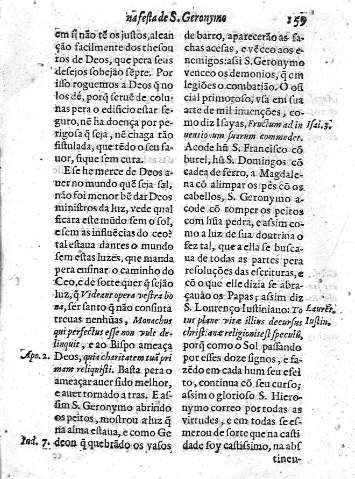 na festa de S. Geronymo
159
em si não tẽ os justos, alcan
ção facilmente dos thesou
ros de Deos, que pera seus
desejos sobejão sẽpre. Por
isso roguemos a Deos q̃ no
los dẽ, porq̃ serue de colu-
nas pera o edificio estar se-
guro, nẽ ha doença por pe-
rigosa q̃ seja, nẽ chaga tão
fistulada, que tẽdo o seu fa-
uor, fique sem cura.
E se he merce de Deos a-
uer no mundo quẽ seja sal,
não foi menor bẽ dar Deos
ministros da luz, vede qual
ficara este mũdo sem o sol,
e sem as influẽcias do ceo?
tal estaua dantes o mundo
sem estas luzes, que manda
pera ensinar o caminho do
Ceo, e de sorte quer q̃ sejão
luz, q̃ Videant opera vestra bo
na, ser santo q̃ não consinta
treuas nenhũas, Monachus
qui perfectus esse non vult de-
linquit, e ao Bispo ameaça
Apo. 2. Deos, quia charitatem tuã pri
mam reliquisti. Basta pera o
ameaçar auer sido melhor,
e auer tornado a tras. E as-
sim S. Geronymo abrindo
os peitos, mostrou a luz q̃
na alma estaua, e como Ge
Iud. 7. deon q̃ quebrãdo os vasos
de barro, aparecerão as fa-
chas acesas, e vẽceo aos e-
nemigos: assi S. Geronymo
venceo os demonios, q̃ em
legiões o combatião. O of-
cial primoroso, vsa em sua
arte de mil inuenções, co-
mo diz Isayas, Fructum ad in Isai. 3.
uentionum suarum commedet.
Acode hũ S. Francisco cõ
burel, hũ S. Domingos cõ
cadea de ferro, a Magdale-
na cõ alimpar os pés cõ os
cabellos, S. Geronymo a-
code cõ romper os peitos
com hũa pedra, e assim co-
mo a luz de sua doutrina o
fez tal, que a ella se busca-
ua de todas as partes pera
resoluções das escrituras, e
cõ o que elle dizia se abra-
çauão os Papas; assim diz
S. Lourenço Iustiniano: To Laurẽt.
tus plane vitæ illius decursus Iustin.
christianæ religionis est speculũ,
porq̃ como o Sol passando
por esses doze signos, e fa-
zẽdo em cada hum seu efei
to, continua cõ seu curso;
assim o glorioso S. Hiero-
nymo correo por todas as
virtudes, e em todas se es-
merou de sorte que na casti
dade foy castissimo, na abs
tinen-